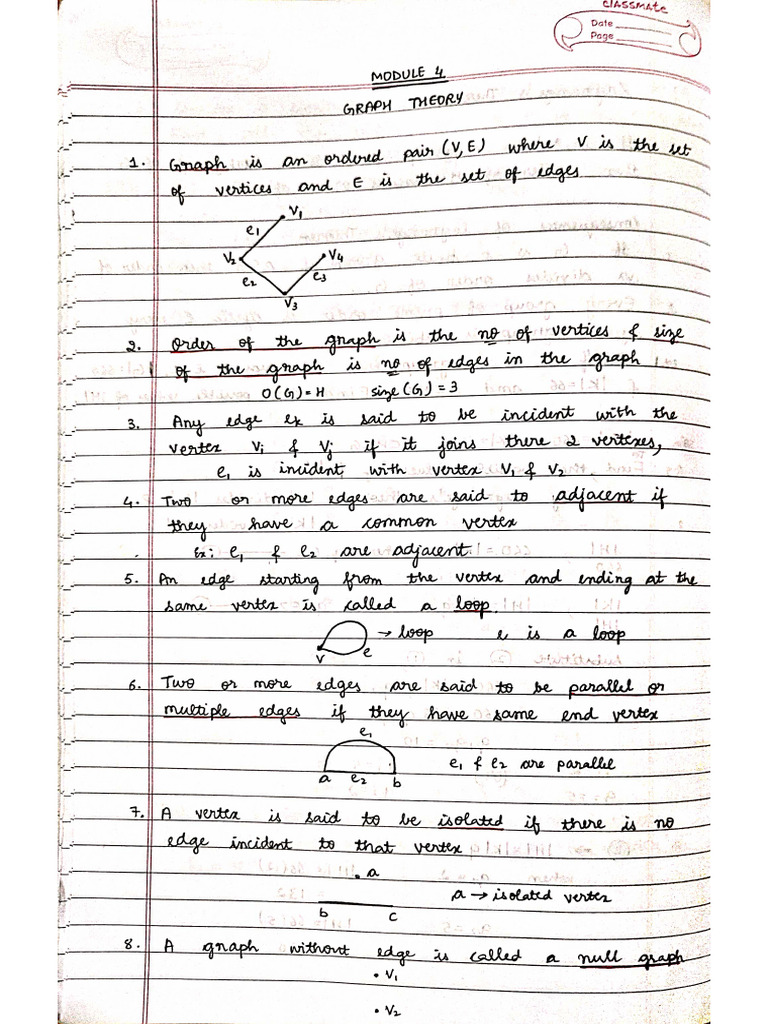 classmate
Date
Page
MODULE 4
GRAPH THEORY
1. Graph is an ordered pair (V, E) where V is the set
of vertices and E is the set of edges
V1
e1
V2
V4
e2
e3
V3
2. Order of the graph is the no of vertices & size
of the graph is no of edges in the graph
O(G) = H size (G) = 3
3. Any edge ek is said to be incident with the
vertex Vi & Vj if it joins there 2 vertexes,
e1 is incident with vertex V1 & V2
4. Two or more edges are said to adjacent if
they have a common vertex
Ex: e1 & e2 are adjacent
5. An edge starting from the vertex and ending at the
same vertex is called a loop
→ loop e is a loop
V e
6. Two or more edges are said to be parallel or
multiple edges if they have same end vertex
e1
e1 & e2 are parallel
a e2 b
7. A vertex is said to be isolated if there is no
edge incident to that vertex
. a
a → isolated vertex
b c
8. A graph without edge is called a null graph
• V1
• V2